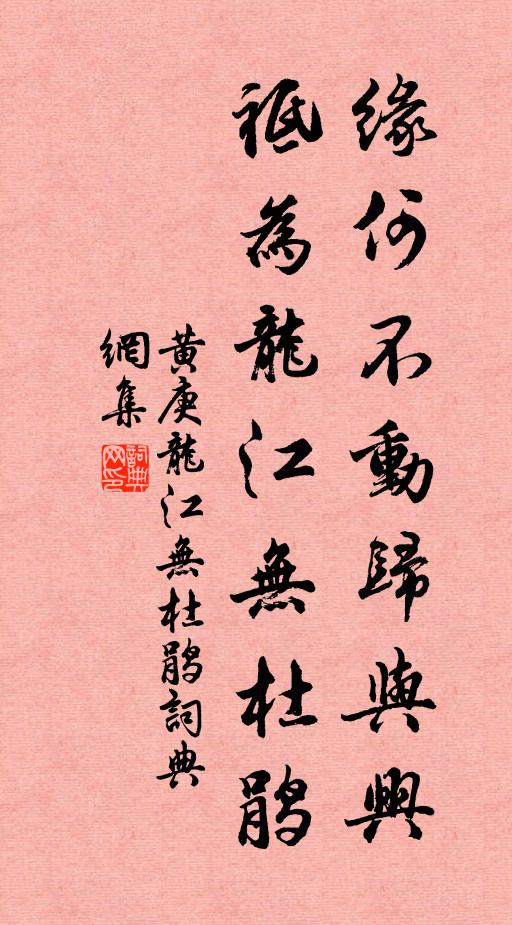 緣何不動歸與興
祗為龍江無杜鵑
黃庚龍江無杜鵑詞典
網集
詞典
网印